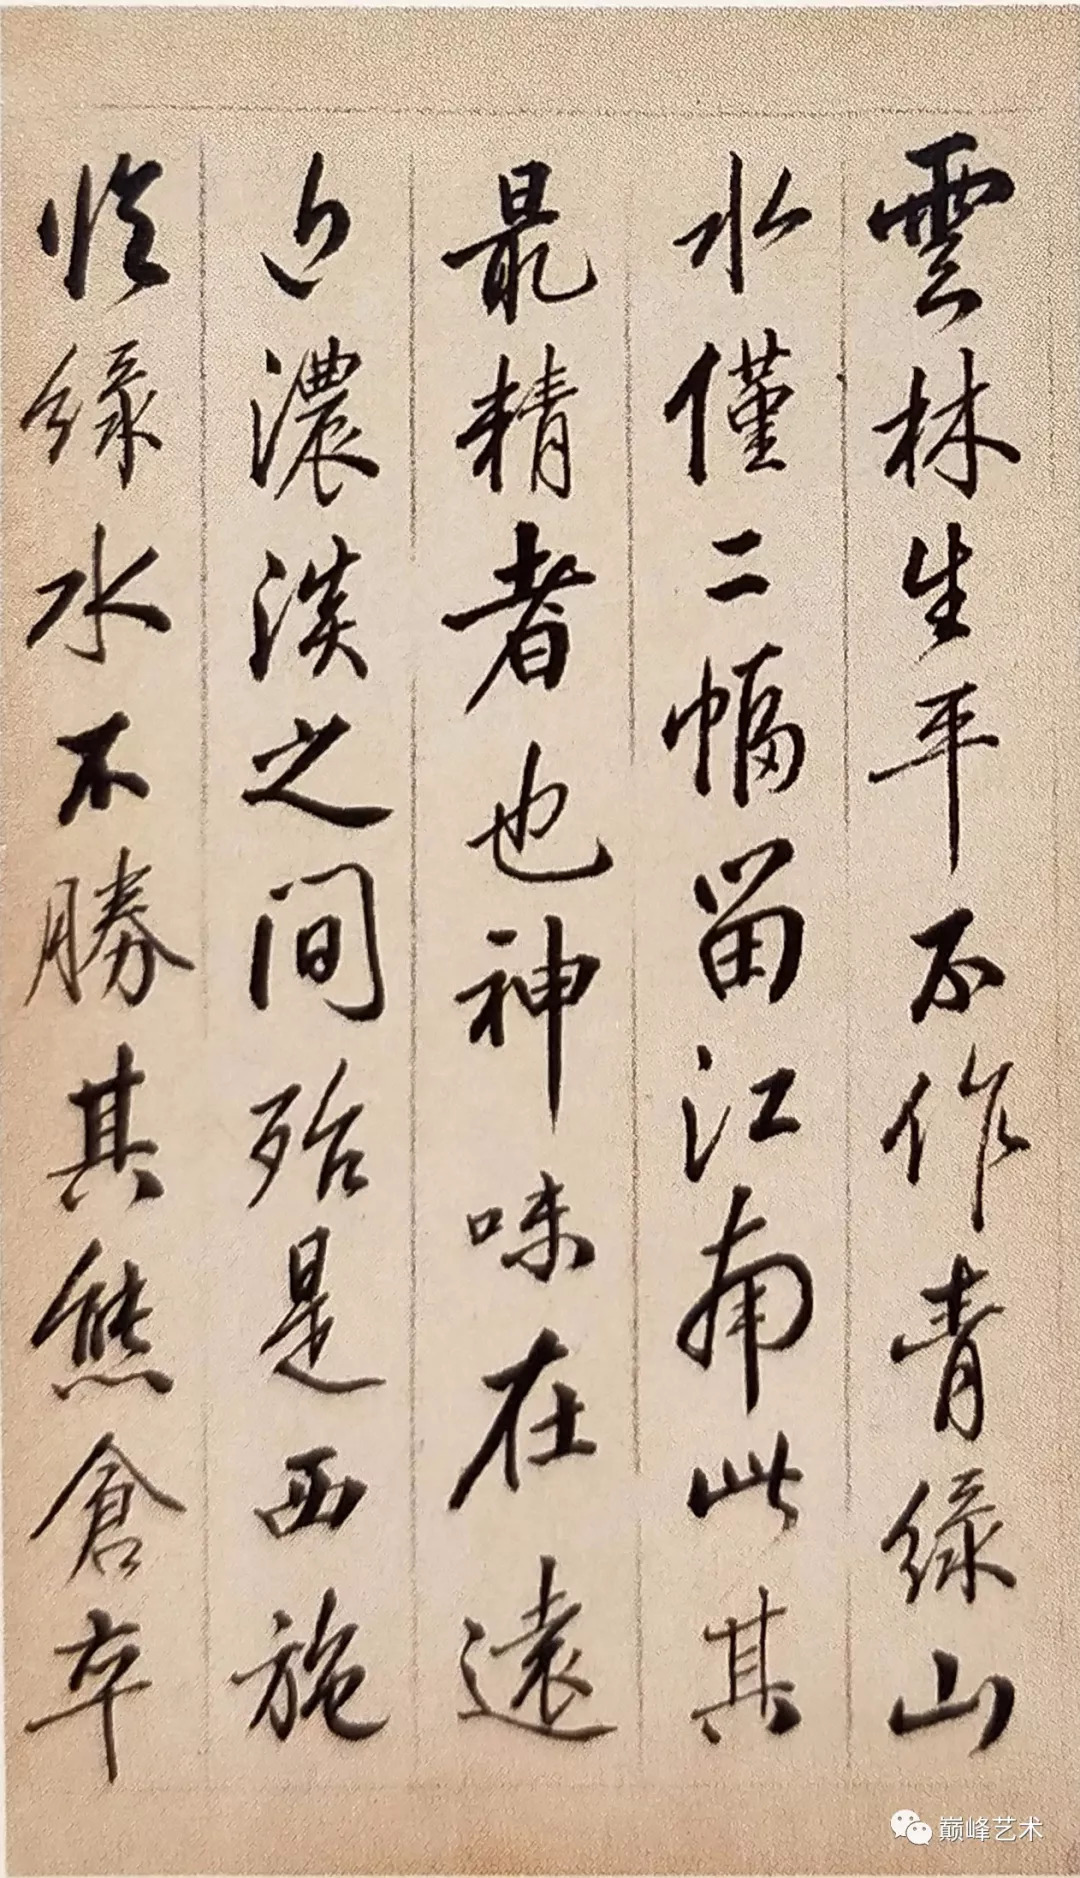 雲林生平不作青綠山
水僅二幅留江南此其
最精者也神味在遠
近濃淡之间殆是西施
臨綠水不勝其態倉卒
巅峰艺术